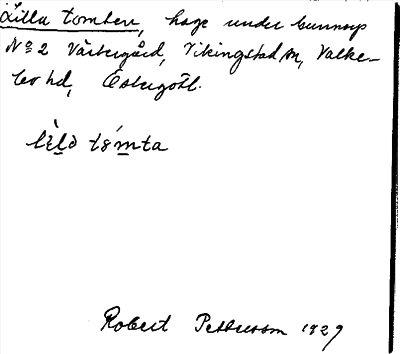 Lilla tomten, hage under Gunnorp
N:o 2 Västergård, Vikingstad sn, Valke-
bo hd, Östergötl.
lìlo tómta
Robert Pettersson 1929